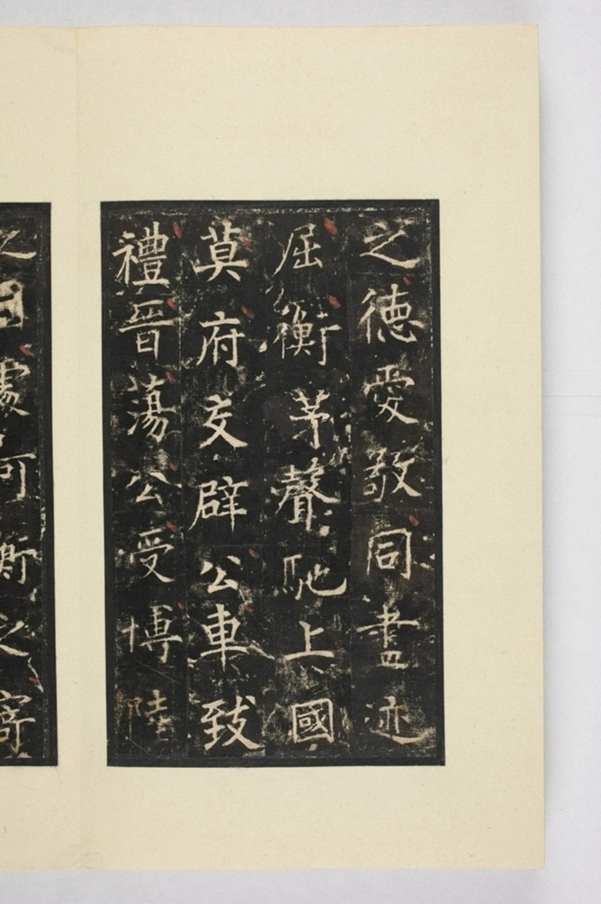 之德愛敬同盡迹
屈衡茅聲馳上國
莫府交辟公車致
禮晉蕩公受博陸
之處阿衡之寄